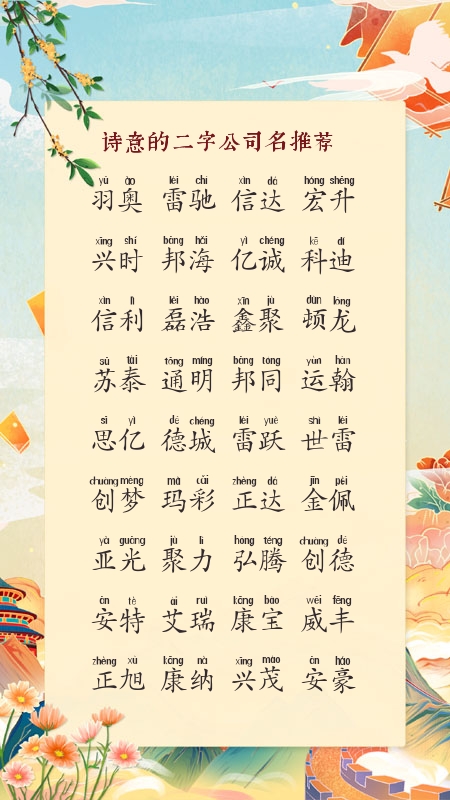 诗意的二字公司名推荐
yǔ ào léi chí xìn dá hóng shēng
羽奥 雷驰 信达 宏升
xīng shí bāng hǎi yì chéng kē dí
兴时 邦海 亿诚 科迪
xìn lì lěi hào xīn jù dùn lóng
信利 磊浩 鑫聚 顿龙
sū tài tōng míng bāng tóng yùn hàn
苏泰 通明 邦同 运翰
sī yì dé chéng léi yuè shì léi
思亿 德城 雷跃 世雷
chuàng mèng mǎ cǎi zhèng dá jīn pèi
创梦 玛彩 正达 金佩
yà guāng jù lì hóng téng chuàng dé
亚光 聚力 弘腾 创德
ān tè ài ruì kāng bǎo wēi fēng
安特 艾瑞 康宝 威丰
zhèng xù kāng nà xīng mào ān háo
正旭 康纳 兴茂 安豪